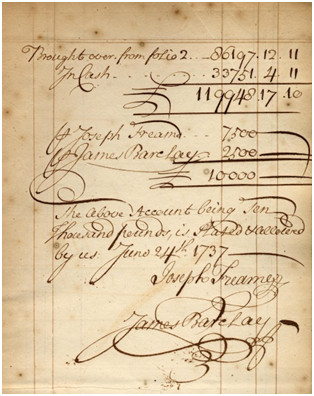 Brought over from folio 2 . . . 86197 . 12 . 11
In Cash . . . . 33751 . 4 . 11
£ 119948 . 17 . 10
Joseph Freame . . . 7500
James Barclay . . . 2500
£ 10000
The Above Account being Ten
Thousand pounds, is Stated & allowed
by us June 24th. 1737
Joseph Freame
James Barclay